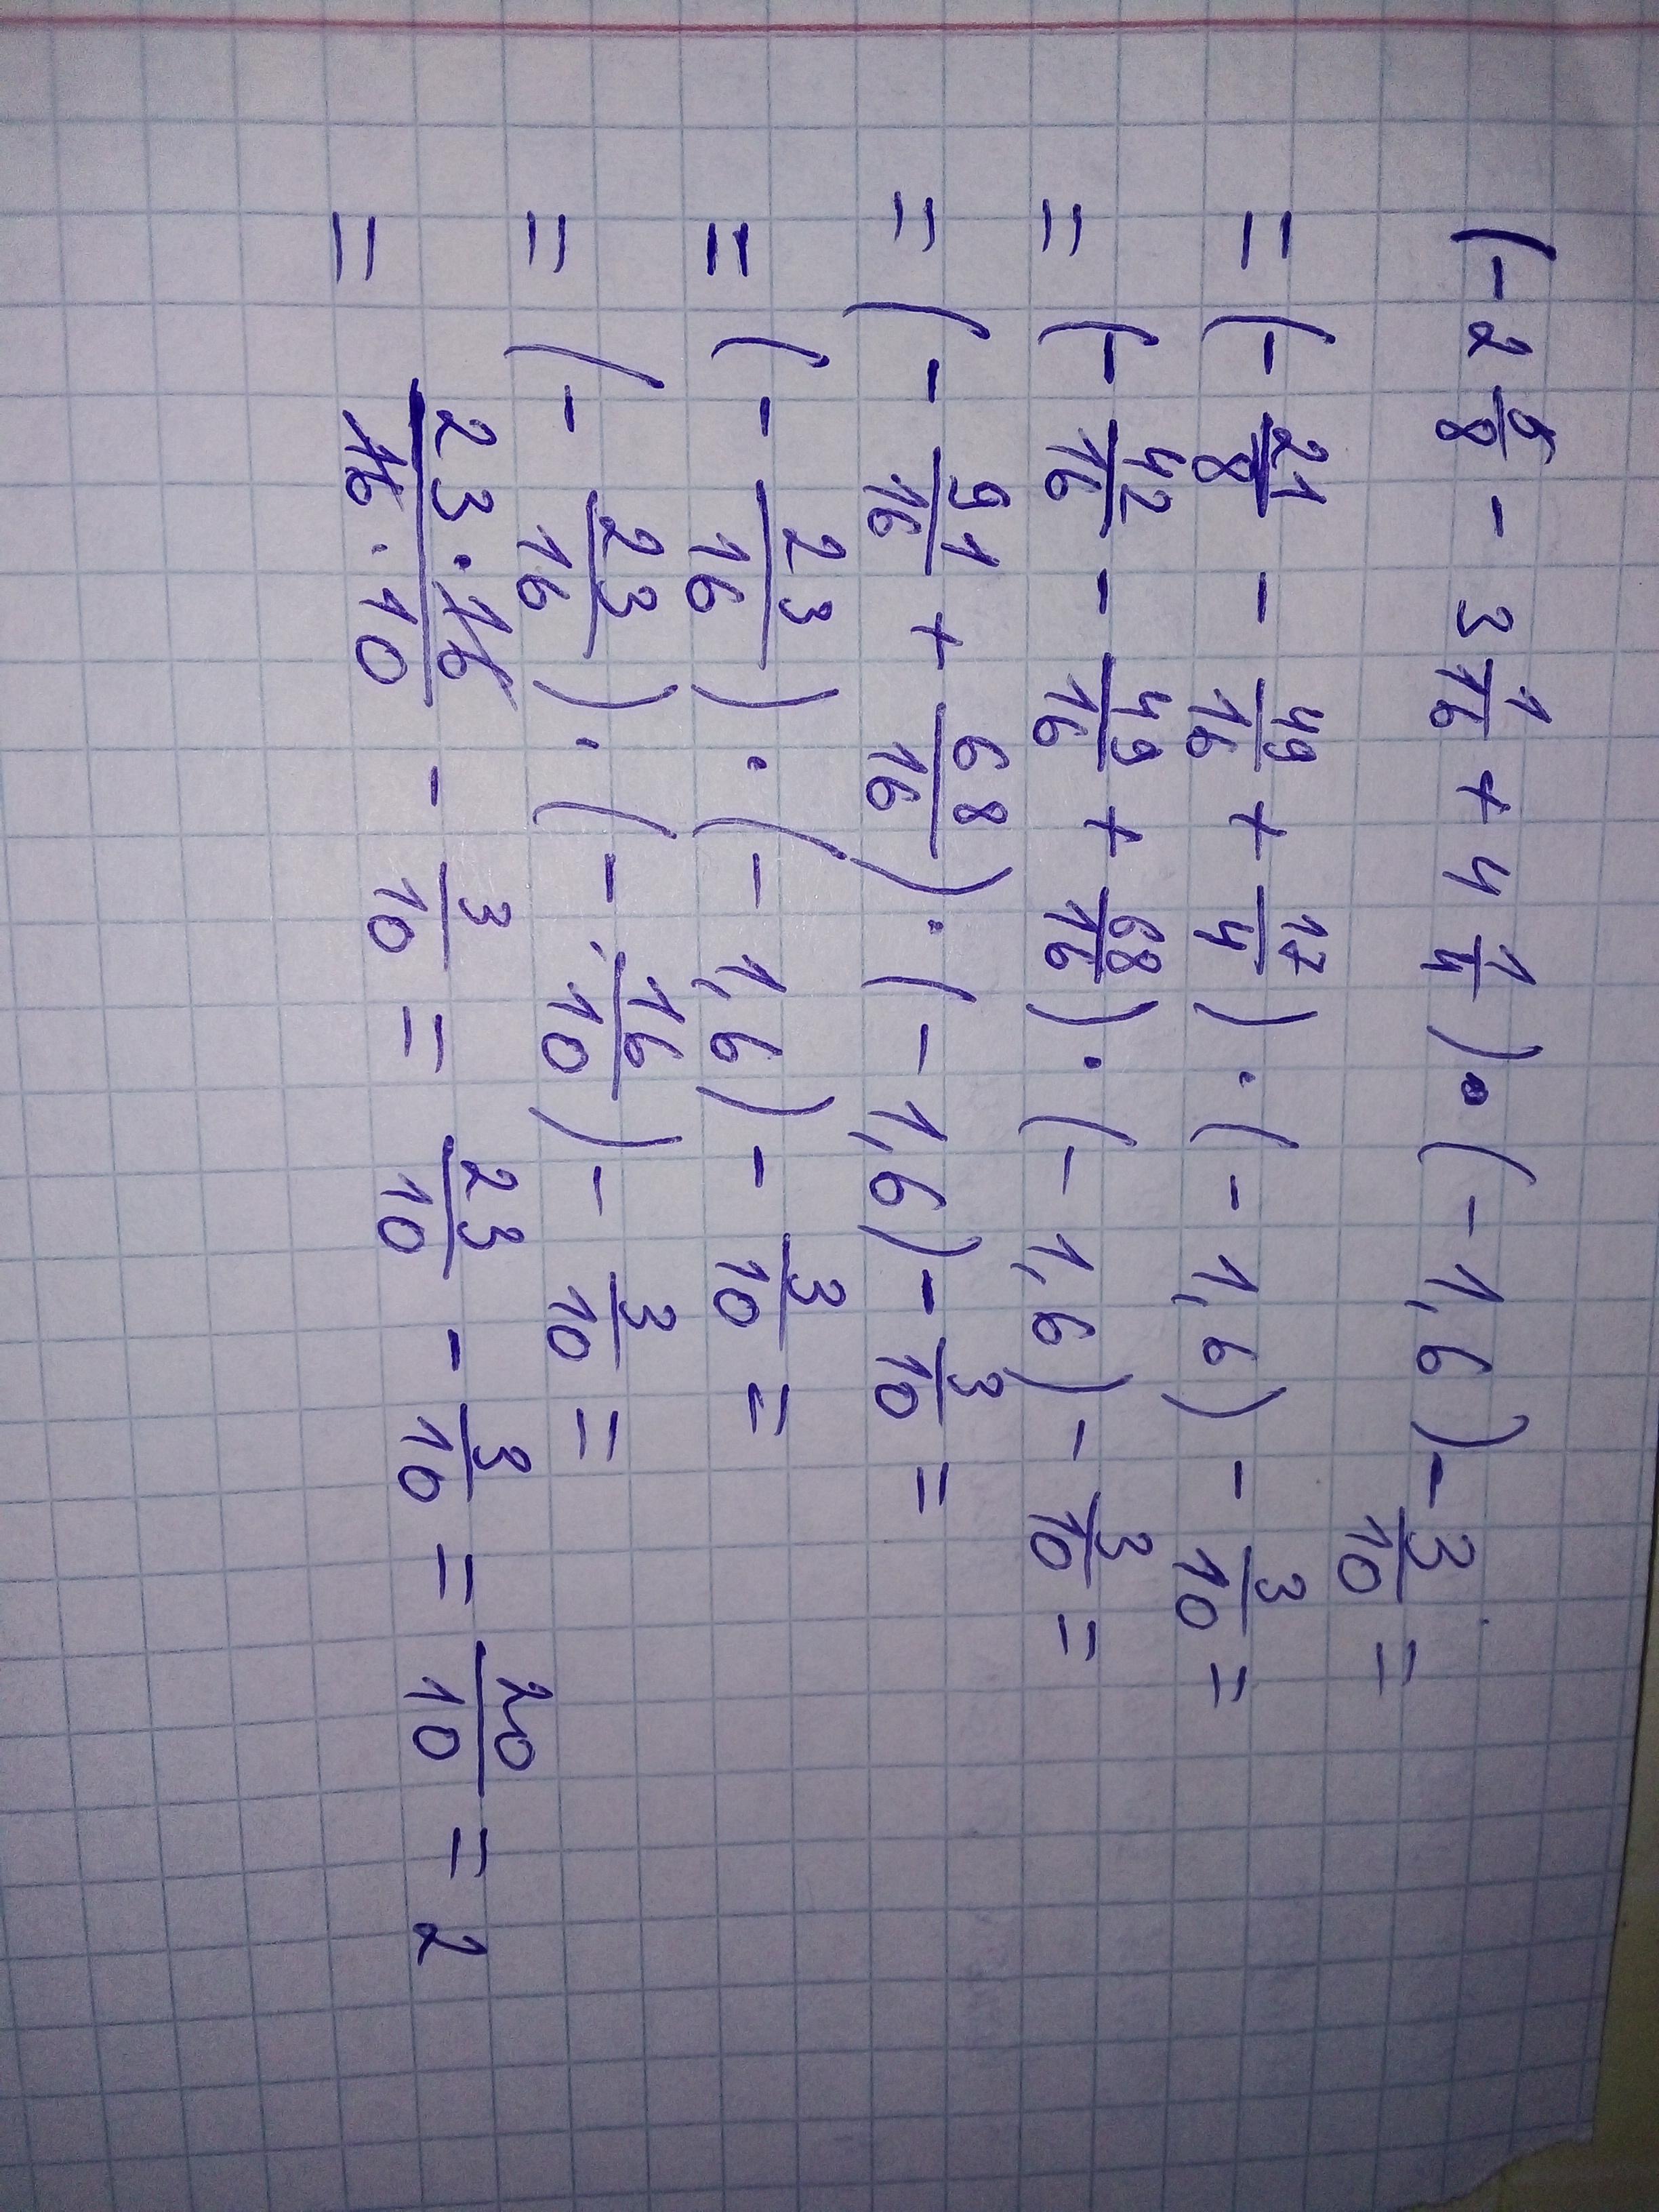 (-2 5/8 - 3 1/16 + 4 1/4) · (-1,6) - 3/10 =
= (- 21/8 - 49/16 + 17/4) · (-1,6) - 3/10 =
= (- 42/16 - 49/16 + 68/16) · (-1,6) - 3/10 =
= (- 91/16 + 68/16) · (-1,6) - 3/10 =
= (- 23/16) · (-1,6) - 3/10 =
= (- 23/16) · (- 16/10) - 3/10 =
= 23·16/16·10 - 3/10 = 23/10 - 3/10 = 20/10 = 2